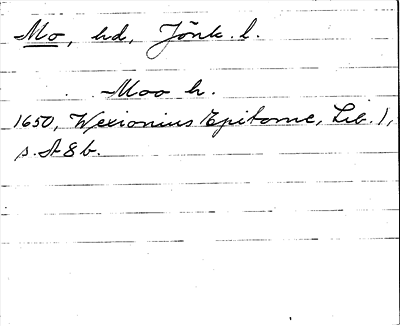 Mo, hd, Jönk. l.
Moo h.
1650, Wexionius Epitome, Lib. 1,
s. A 8 b.